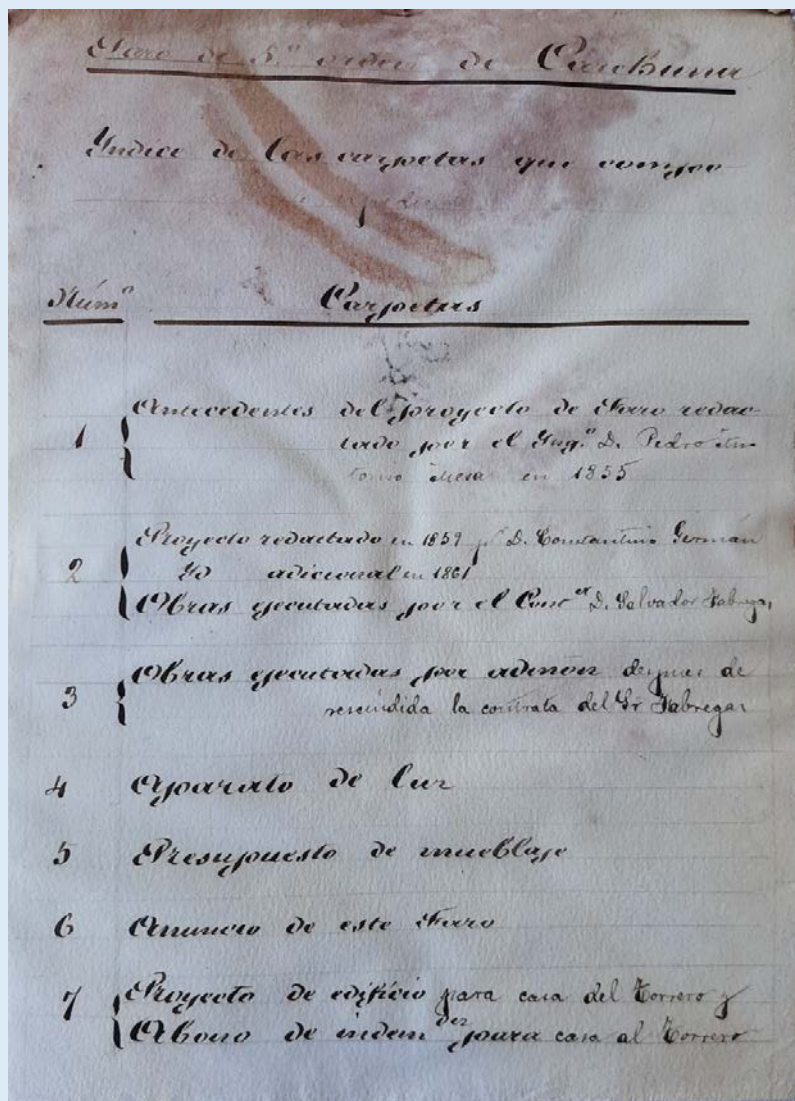 Faro de 5º orden de Carchuna
Yndice de las carpetas que compo
Númº Carpetas
Antecedentes del proyecto de Faro redac-
1 tado por el Yngº D. Pedro An
tonio Mesa en 1855
Proyecto redactado en 1859 pr D. Constantino Germán
2 Yd adicional en 1861
Obras ejecutadas por el Contta D. Salvador Fabregas
Obras ejecutadas por admón despues de
3 rescindida la contrata del Sr Fabregas
4 Aparato de luz
5 Presupuesto de mueblaje
6 Anuncio de este Faro
7 Proyecto de edificio para casa del Torrero y
Abono de indemnes para casa al Torrero